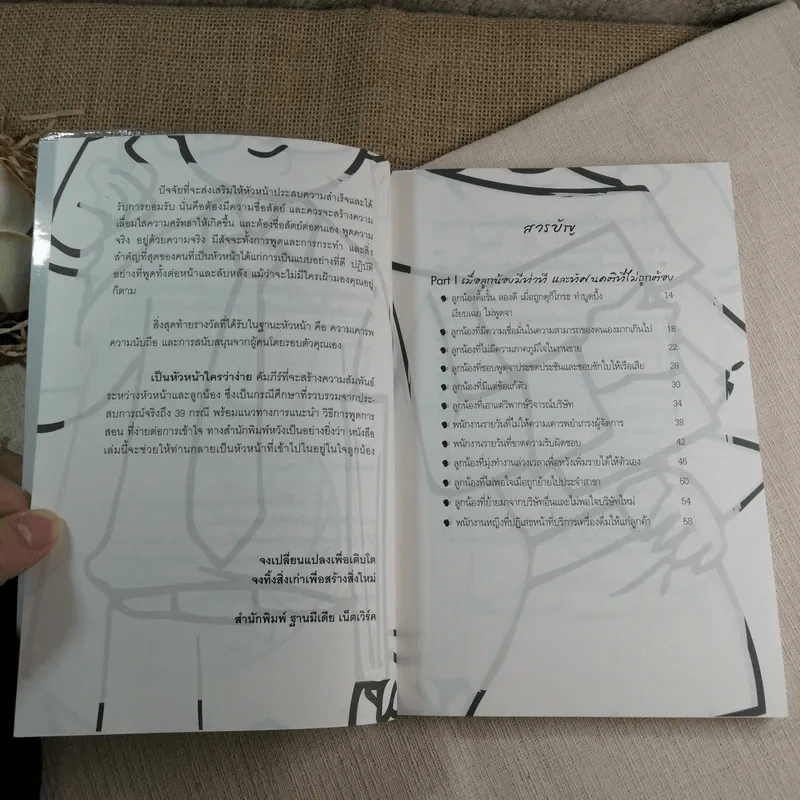 ปัจจัยที่จะส่งเสริมให้หัวหน้าประสบความสำเร็จและได้
รับการยอมรับ นั่นคือต้องมีความซื่อสัตย์ และควรจะสร้างความ
เลื่อมใสความศรัทธาให้เกิดขึ้น และต้องซื่อสัตย์ต่อตนเอง พูดความ
จริง อยู่ด้วยความจริง มีสัจจะทั้งการพูดและการกระทำ และสิ่ง
สำคัญที่สุดของคนที่เป็นหัวหน้าได้แก่การเป็นแบบอย่างที่ดี ปฏิบัติ
อย่างที่พูดทั้งต่อหน้าและลับหลัง แม้ว่าจะไม่มีใครเฝ้ามองคุณอยู่
ก็ตาม
สิ่งสุดท้ายรางวัลที่ได้รับในฐานะหัวหน้า คือ ความเคารพ
ความนับถือ และการสนับสนุนจากผู้คนโดยรอบตัวคุณเอง
เป็นหัวหน้าใครว่าง่าย คัมภีร์ที่จะสร้างความสัมพันธ์
ระหว่างหัวหน้าและลูกน้อง ซึ่งเป็นกรณีศึกษาที่รวบรวมจากประ
สบการณ์จริงถึง 39 กรณี พร้อมแนวทางการแนะนำ วิธีการพูดการ
สอน ที่ง่ายต่อการเข้าใจ ทางสำนักพิมพ์หวังเป็นอย่างยิ่งว่า หนังสือ
เล่มนี้จะช่วยให้ท่านกลายเป็นหัวหน้าที่เข้าไปในอยู่ในใจลูกน้อง
จงเปลี่ยนแปลงเพื่อเติบโต
จงทิ้งสิ่งเก่าเพื่อสร้างสิ่งใหม่
สำนักพิมพ์ ฐานมีเดีย เน็ตเวิร์ค
สารบัญ
Part I เมื่อลูกน้องมีท่าที และทัศนคติที่ไม่ถูกต้อง
ลูกน้องดื้อรั้น ลองดี เมื่อถูกดุก็โกรธ ทำบูดบึ้ง 14
เงียบเฉย ไม่พูดจา
ลูกน้องที่มีความเชื่อมั่นในความสามารถของตนเองมากเกินไป 18
ลูกน้องที่ไม่มีความภาคภูมิใจในงานขาย 22
ลูกน้องที่ชอบพูดจาประชดประชันและชอบชักใบให้เรือเสีย 26
ลูกน้องที่มีแต่ข้อแก้ตัว 30
ลูกน้องที่เอาแต่วิพากษ์วิจารณ์บริษัท 34
พนักงานรายวันที่ไม่ให้ความเคารพยำเกรงผู้จัดการ 38
พนักงานรายวันที่ขาดความรับผิดชอบ 42
ลูกน้องที่มุ่งทำงานล่วงเวลาเพื่อหวังเพิ่มรายได้ให้ตัวเอง 46
ลูกน้องที่ไม่พอใจเมื่อถูกย้ายไปประจำสาขา 50
ลูกน้องที่ย้ายมาจากบริษัทอื่นและไม่พอใจบริษัทใหม่ 54
พนักงานหญิงที่ปฏิเสธหน้าที่บริการเครื่องดื่มให้แก่ลูกค้า 58